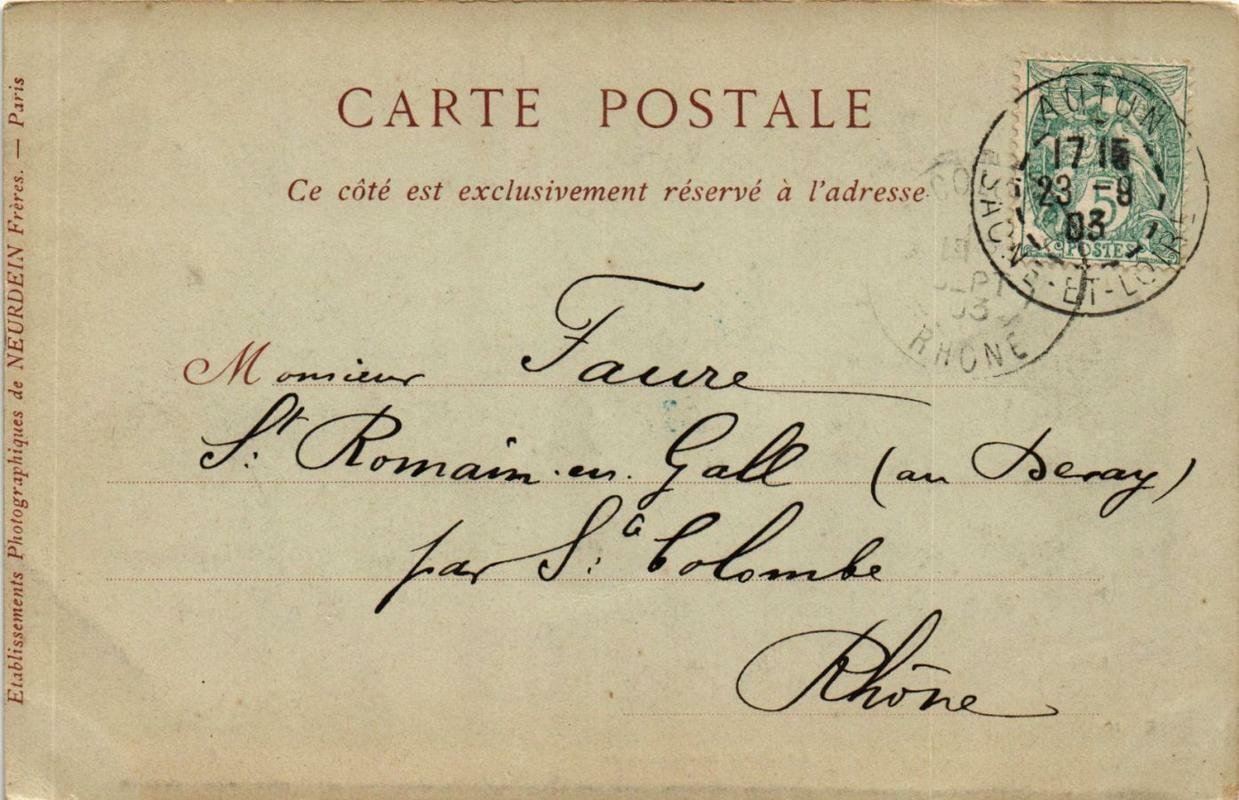 CARTE POSTALE
Ce côté est exclusivement réservé à l'adresse
AUTUN
17 15
23 - 9
03
SAONE-ET-LOIRE
5
POSTES
SEPT
03
RHONE
Monsieur Faure
St. Romain-en-Gall (au Deray)
par Ste. Colombe
Rhône
Etablissements Photographiques de NEURDEIN Frères. — Paris